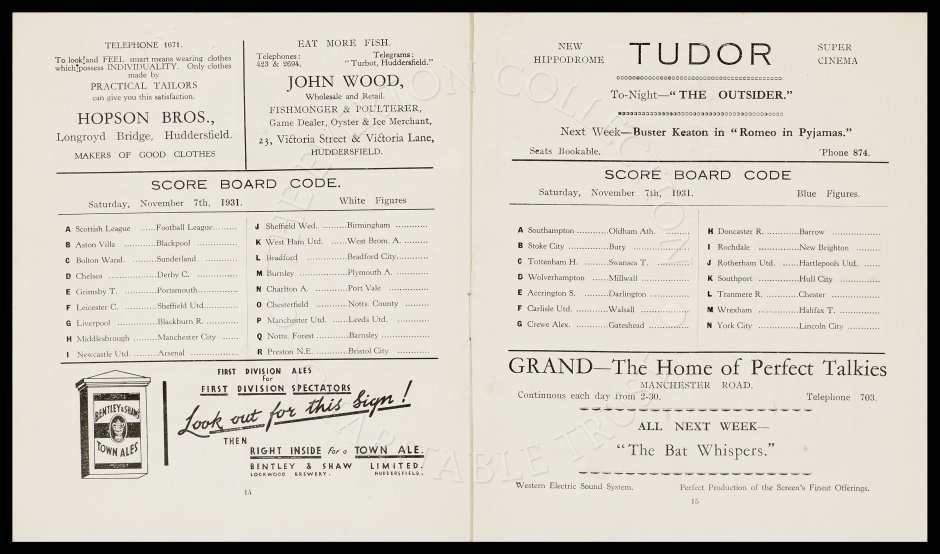 TELEPHONE 1671.
To look and FEEL smart means wearing clothes
which possess INDIVIDUALITY. Only clothes
made by
PRACTICAL TAILORS
can give you this satisfaction.
HOPSON BROS.,
Longroyd Bridge, Huddersfield.
MAKERS OF GOOD CLOTHES
EAT MORE FISH.
Telephones: Telegrams:
423 & 2694. "Turbot, Huddersfield."
JOHN WOOD,
Wholesale and Retail.
FISHMONGER & POULTERER,
Game Dealer, Oyster & Ice Merchant,
23, Victoria Street & Victoria Lane,
HUDDERSFIELD.
SCORE BOARD CODE.
Saturday, November 7th, 1931. White Figures
A Scottish League ......Football League.........
B Aston Villa ............Blackpool ...............
C Bolton Wand. .........Sunderland ............
D Chelsea ...............Derby C. ...............
E Grimsby T. ............Portsmouth............
F Leicester C. .........Sheffield Utd..........
G Liverpool ............Blackburn R. .........
H Middlesbrough ......Manchester City ......
I Newcastle Utd. ......Arsenal ...............
J Sheffield Wed. ......Birmingham .........
K West Ham Utd. ......West Brom. A..........
L Bradford ............Bradford City.........
M Burnley ...............Plymouth A. .........
N Charlton A. .........Port Vale ............
O Chesterfield .........Notts. County ......
P Manchester Utd. ......Leeds Utd. .........
Q Notts. Forest .........Barnsley ............
R Preston N.E. .........Bristol City .........
FIRST DIVISION ALES
for
FIRST DIVISION SPECTATORS
Look out for this Sign!
THEN
RIGHT INSIDE for a TOWN ALE.
BENTLEY & SHAW LIMITED.
LOCKWOOD BREWERY. HUDDERSFIELD.
BENTLEY & SHAW'S
TOWN ALES
14
NEW HIPPODROME
TUDOR
SUPER CINEMA
To-Night—"THE OUTSIDER."
Next Week—Buster Keaton in "Romeo in Pyjamas."
Seats Bookable. 'Phone 874.
SCORE BOARD CODE
Saturday, November 7th, 1931. Blue Figures.
A Southampton .........Oldham Ath. .........
B Stoke City ............Bury ..................
C Tottenham H. .........Swansea T. .........
D Wolverhampton ......Millwall ...............
E Accrington S. .........Darlington ............
F Carlisle Utd. .........Walsall ...............
G Crewe Alex. .........Gateshead ............
H Doncaster R. .........Barrow ...............
I Rochdale ............New Brighton .........
J Rotherham Utd. ......Hartlepools Utd. ......
K Southport ............Hull City ............
L Tranmere R. .........Chester ...............
M Wrexham ............Halifax T. ............
N York City ............Lincoln City .........
GRAND—The Home of Perfect Talkies
MANCHESTER ROAD.
Continuous each day from 2-30. Telephone 703.
ALL NEXT WEEK—
"The Bat Whispers."
Western Electric Sound System. Perfect Production of the Screen's Finest Offerings.
15